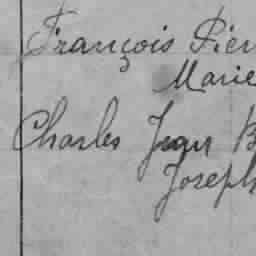 François Pier
Marie
Charles Jean B
Joseph